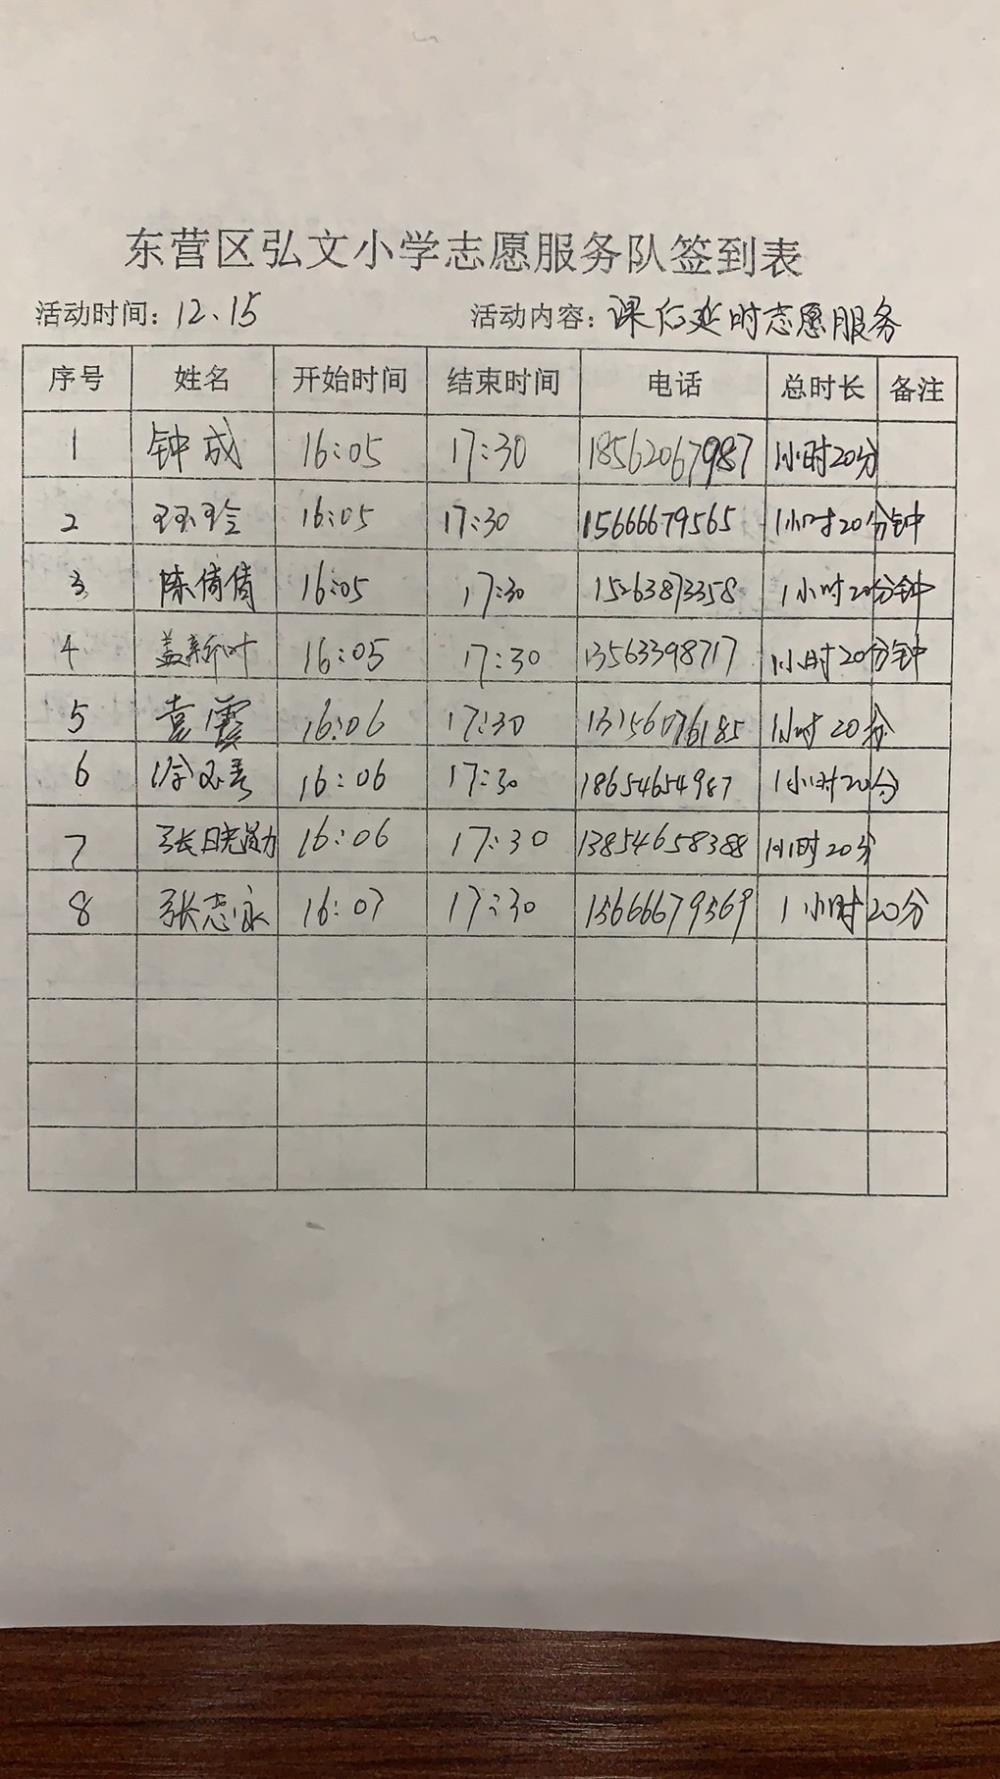 东营区弘文小学志愿服务队签到表
活动时间：12、15 活动内容：课后延时志愿服务
序号 姓名 开始时间 结束时间 电话 总时长 备注
1 钟成 16:05 17:30 18562067987 1小时20分
2 16:05 17:30 15666679565 1小时20分钟
3 陈倩倩 16:05 17:30 15263873358 1小时20分钟
4 盖新叶 16:05 17:30 13563398717 1小时20分钟
5 袁霞 16:06 17:30 13156076185 1小时20分
6 16:06 17:30 18654654987 1小时20分
7 16:06 17:30 13854658388 1小时20分
8 张志永 16:07 17:30 15666679569 1小时20分